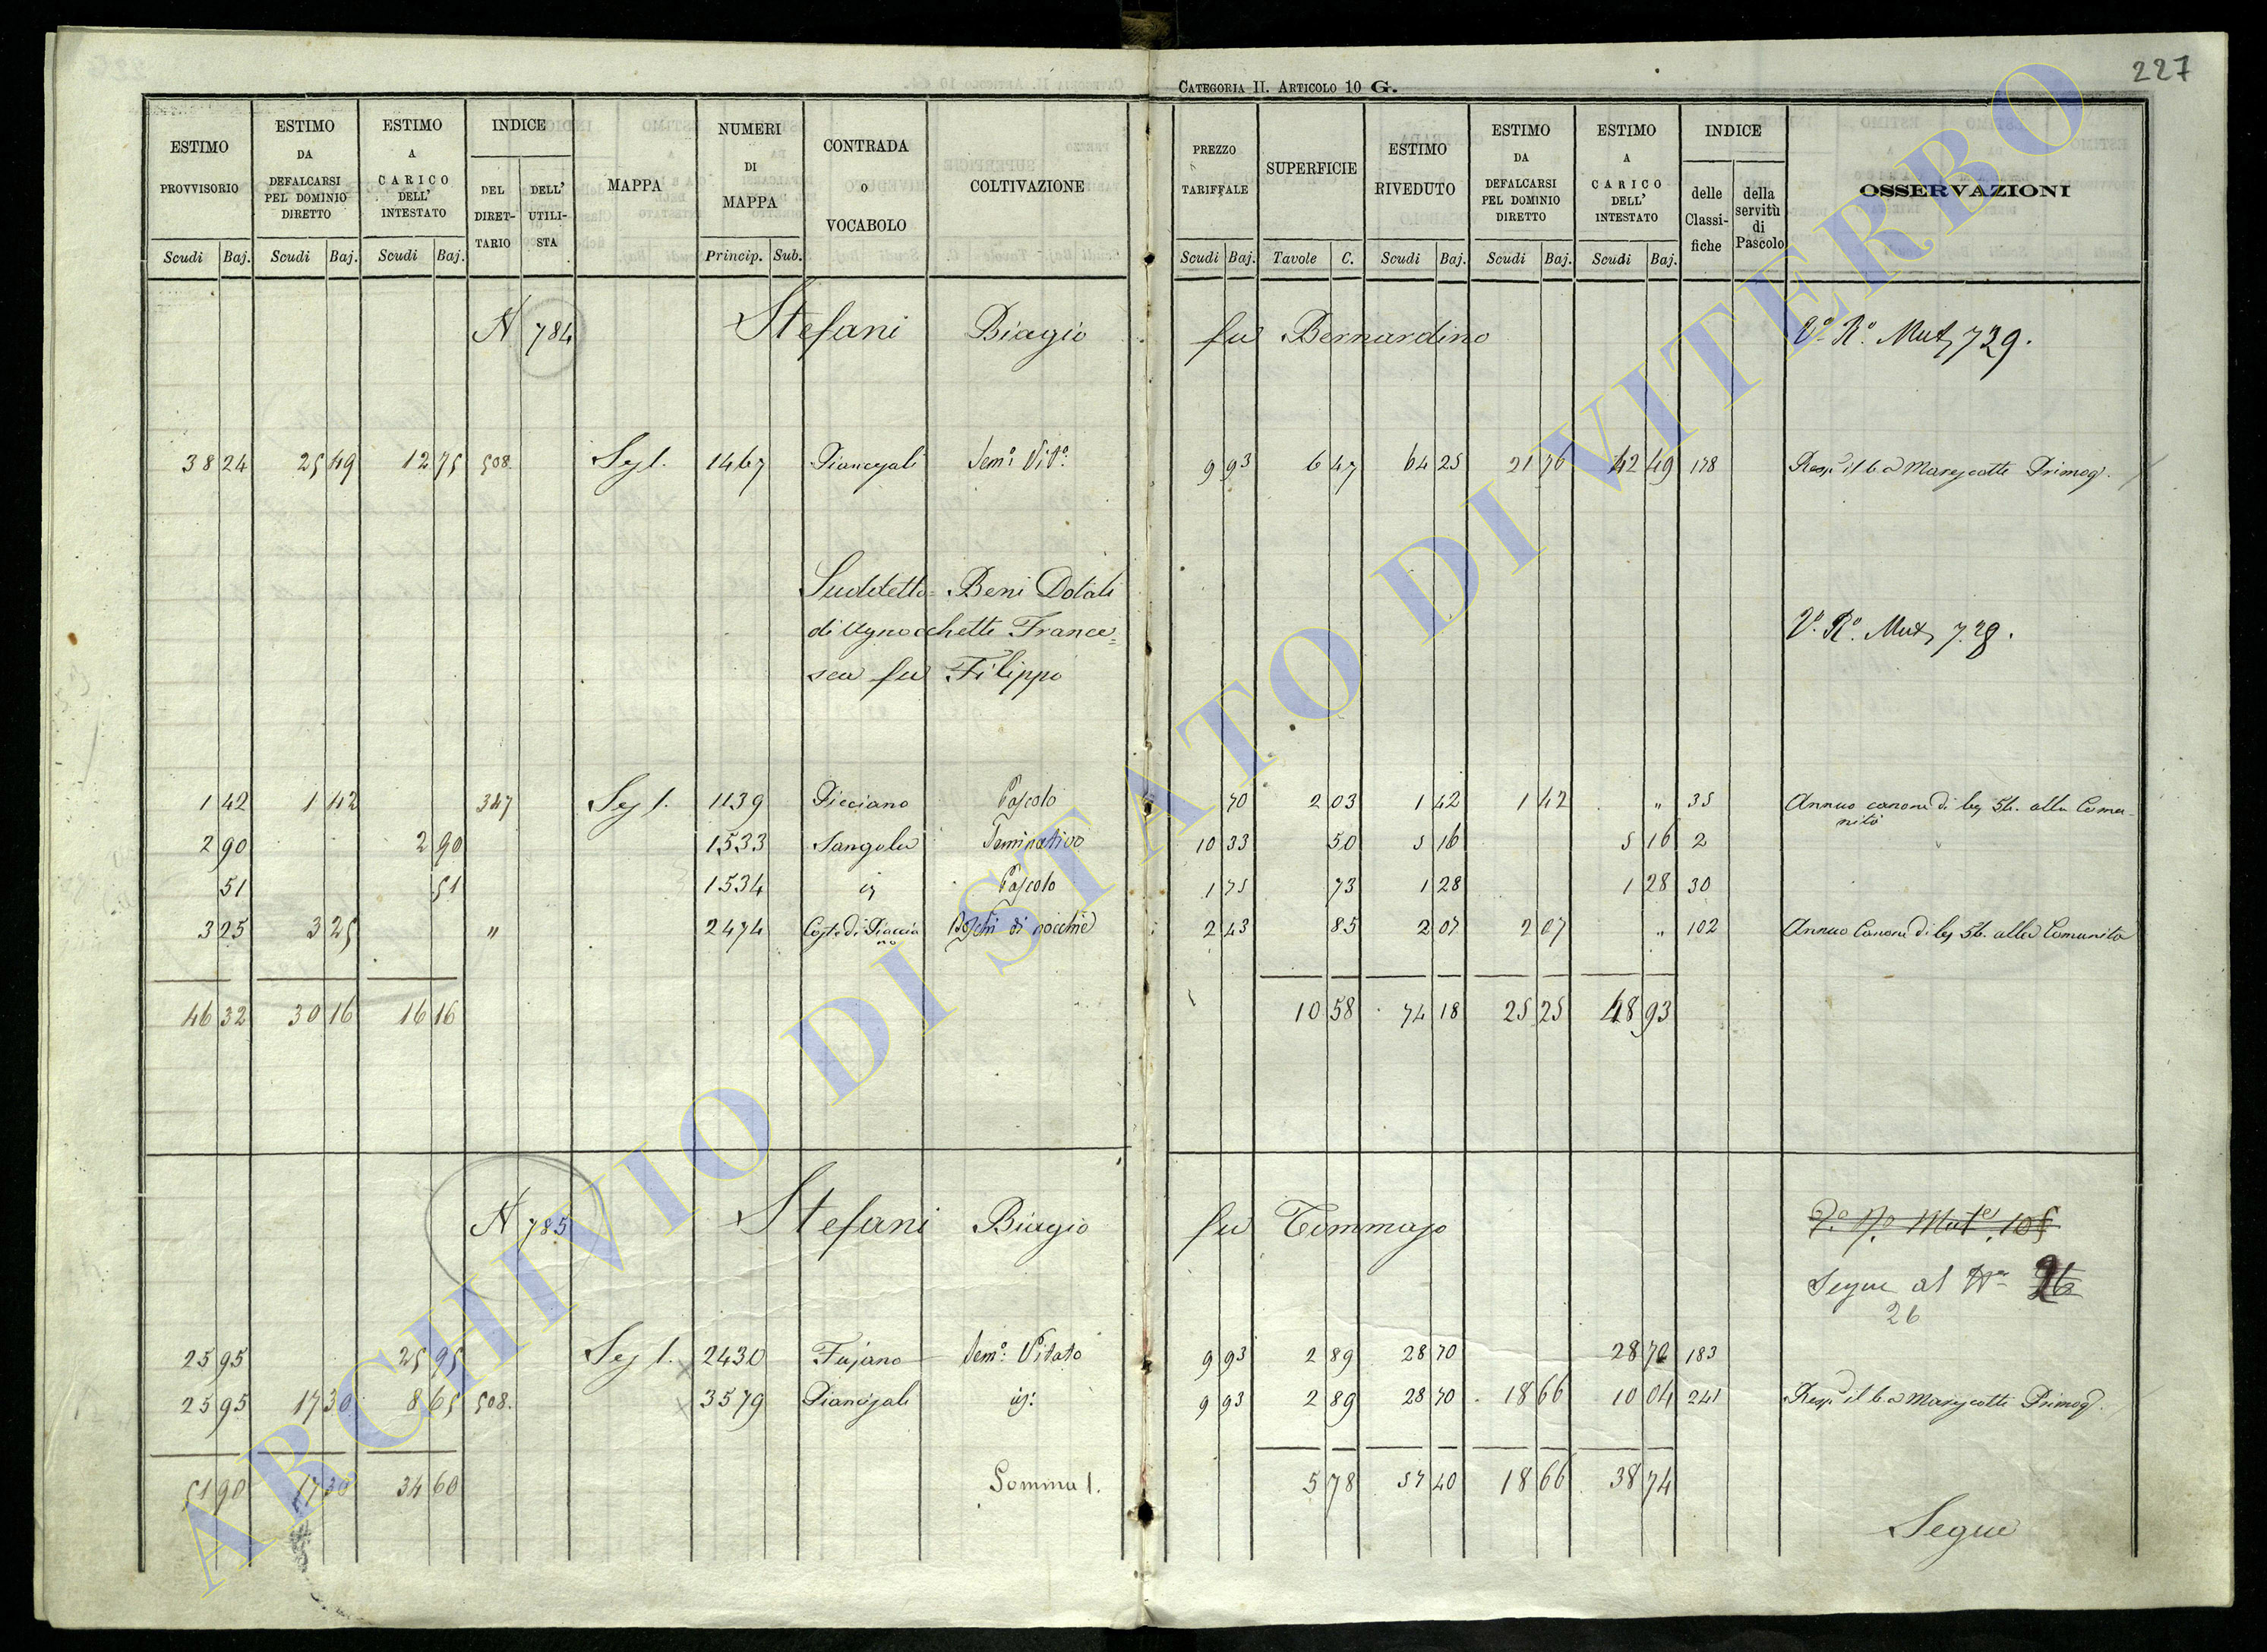 CATEGORIA II. ARTICOLO 10 G.
227
ESTIMO PROVVISORIO Scudi Baj.
ESTIMO DA DEFALCARSI PEL DOMINIO DIRETTO Scudi Baj.
ESTIMO A CARICO DELL' INTESTATO Scudi Baj.
INDICE DEL DIRET-TARIO DELL' UTILI-STA
MAPPA
NUMERI DI MAPPA Princip. Sub.
CONTRADA O VOCABOLO
COLTIVAZIONE
PREZZO TARIFFALE Scudi Baj.
SUPERFICIE Tavole C.
ESTIMO RIVEDUTO Scudi Baj.
ESTIMO DA DEFALCARSI PEL DOMINIO DIRETTO Scudi Baj.
ESTIMO A CARICO DELL' INTESTATO Scudi Baj.
INDICE delle Classi-fiche della servitù di Pascolo
OSSERVAZIONI
N 784 Stefani Biagio fu Bernardino Vº Rº. Mut 729.
38 24 25 49 12 75 508 Sez 1. 1467 Sem: Vitº. 9 93 6 47 64 25 21 76 42 49 178 Primog.
Suddetto = Beni Dotali
di France=
sca fu Filippo
Vº Rº. Mut 728.
1 42 1 42 347 Sez 1. 1139 Picciano Pascolo 70 2 03 1 42 1 42 " 35 Annuo canone di bj 56. alla Comu-
nità
2 90 2 90 1533 Sangola Seminativo 10 33 50 5 16 5 16 2
51 51 1534 Pascolo 1 75 73 1 28 1 28 30
3 25 3 25 " 2474 2 43 85 2 07 2 07 " 102 Annuo Canone di bj 56. alla Comunità
46 32 30 16 16 16 10 58 74 18 25 25 48 93
N 785 Stefani Biagio fu Tommaso
Segue al Nº
26
25 95 25 95 Sez 1. 2430 Fajano Sem: Vitato 9 93 2 89 28 70 28 70 183
25 95 17 30 8 65 508. 3579 9 93 2 89 28 70 18 66 10 04 241 Primog.
51 90 17 30 34 60 Somma 1. 5 78 57 40 18 66 38 74
Segue
ARCHIVIO DI STATO DI VITERBO